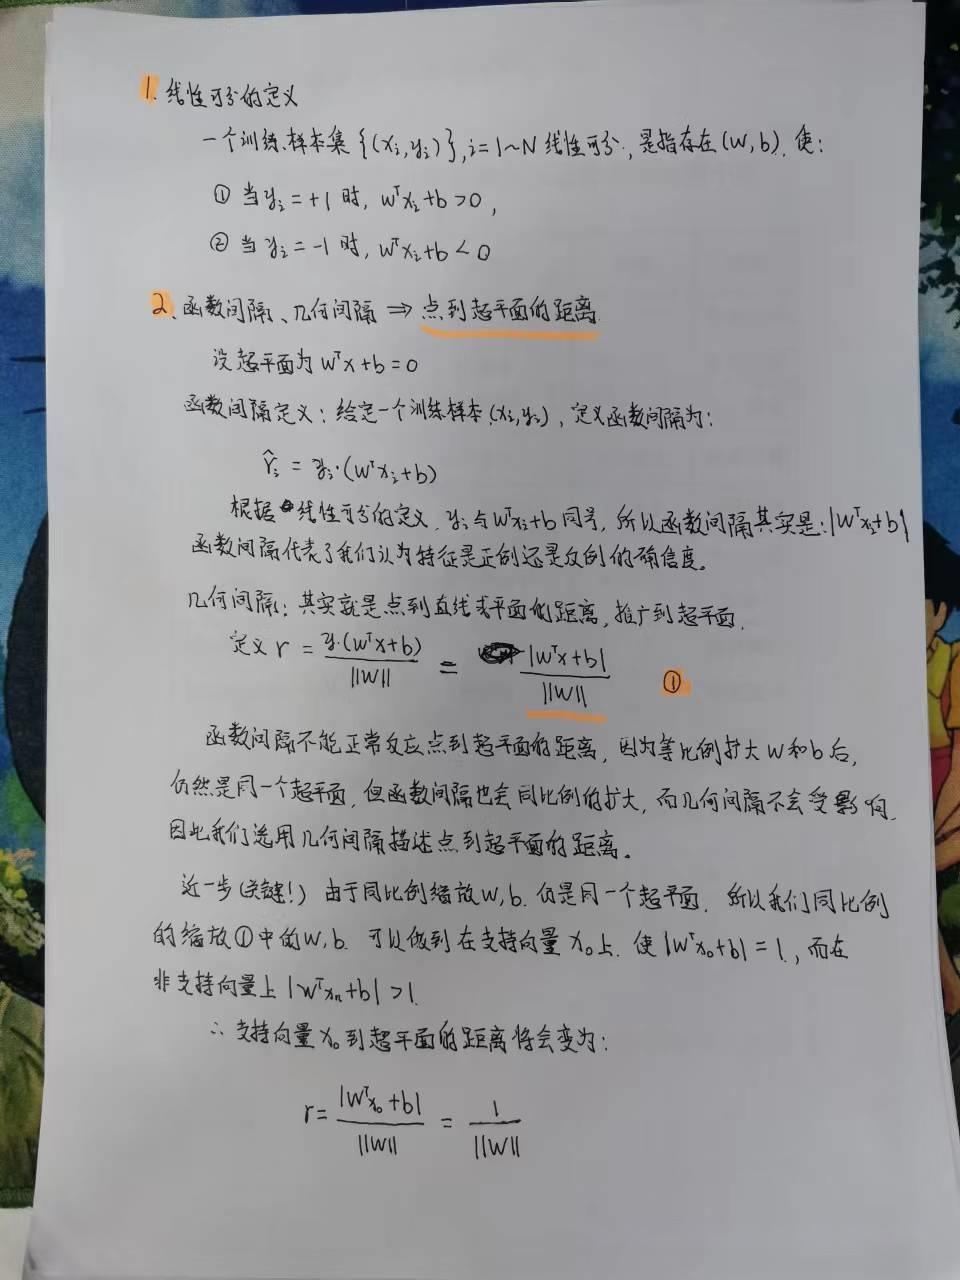 1. 线性可分的定义
一个训练样本集 {(xᵢ,yᵢ)}, i=1~N 线性可分, 是指存在(w,b). 使:
① 当 yᵢ=+1 时, wᵀxᵢ+b>0,
② 当 yᵢ=-1 时, wᵀxᵢ+b<0
2、函数间隔、几何间隔 ⇒ 点到超平面的距离
设超平面为 wᵀx+b=0
函数间隔定义: 给定一个训练样本(xᵢ,yᵢ), 定义函数间隔为:
r̂ᵢ = yᵢ·(wᵀxᵢ+b)
根据线性可分的定义, yᵢ与wᵀxᵢ+b同号, 所以函数间隔其实是: |wᵀxᵢ+b|
函数间隔代表了我们认为特征是正例还是反例的确信度。
几何间隔: 其实就是点到直线或平面的距离, 推广到超平面.
定义 r = y·(wᵀx+b)/||w|| = |wᵀx+b|/||w|| ①
函数间隔不能正常反应点到超平面的距离, 因为等比例扩大 w 和 b 后,
仍然是同一个超平面, 但函数间隔也会同比例的扩大, 而几何间隔不会受影响.
因此我们选用几何间隔描述点到超平面的距离。
近一步(关键!) 由于同比例缩放w,b. 仍是同一个超平面. 所以我们同比例
的缩放①中的w,b. 可以做到在支持向量 x₀上. 使 |wᵀx₀+b|=1., 而在
非支持向量上 |wᵀxₙ+b|>1.
∴ 支持向量 x₀ 到超平面的距离将会变为:
r = |wᵀx₀+b|/||w|| = 1/||w||